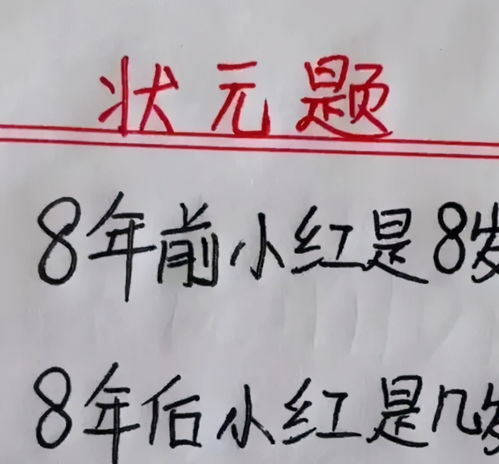 状元题
8年前小红是8岁
8年后小红是几岁